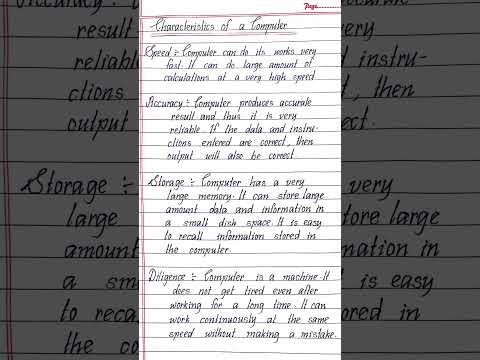 Page
Characteristics of a Computer
Speed :- Computer can do its works very
fast. It can do large amount of
calculations at a very high speed
Accuracy :- Computer produces accurate
result and thus it is very
reliable. If the data and instru-
ctions entered are correct, then
output will also be correct
Storage :- Computer has a very
large memory. It can store large
amount data and information in
a small dish space. It is easy
to recall information stored in
the computer.
Diligence :- Computer is a machine. It
does not get tired even after
working for a long time. It can
work continuously at the same
speed without making a mistake.